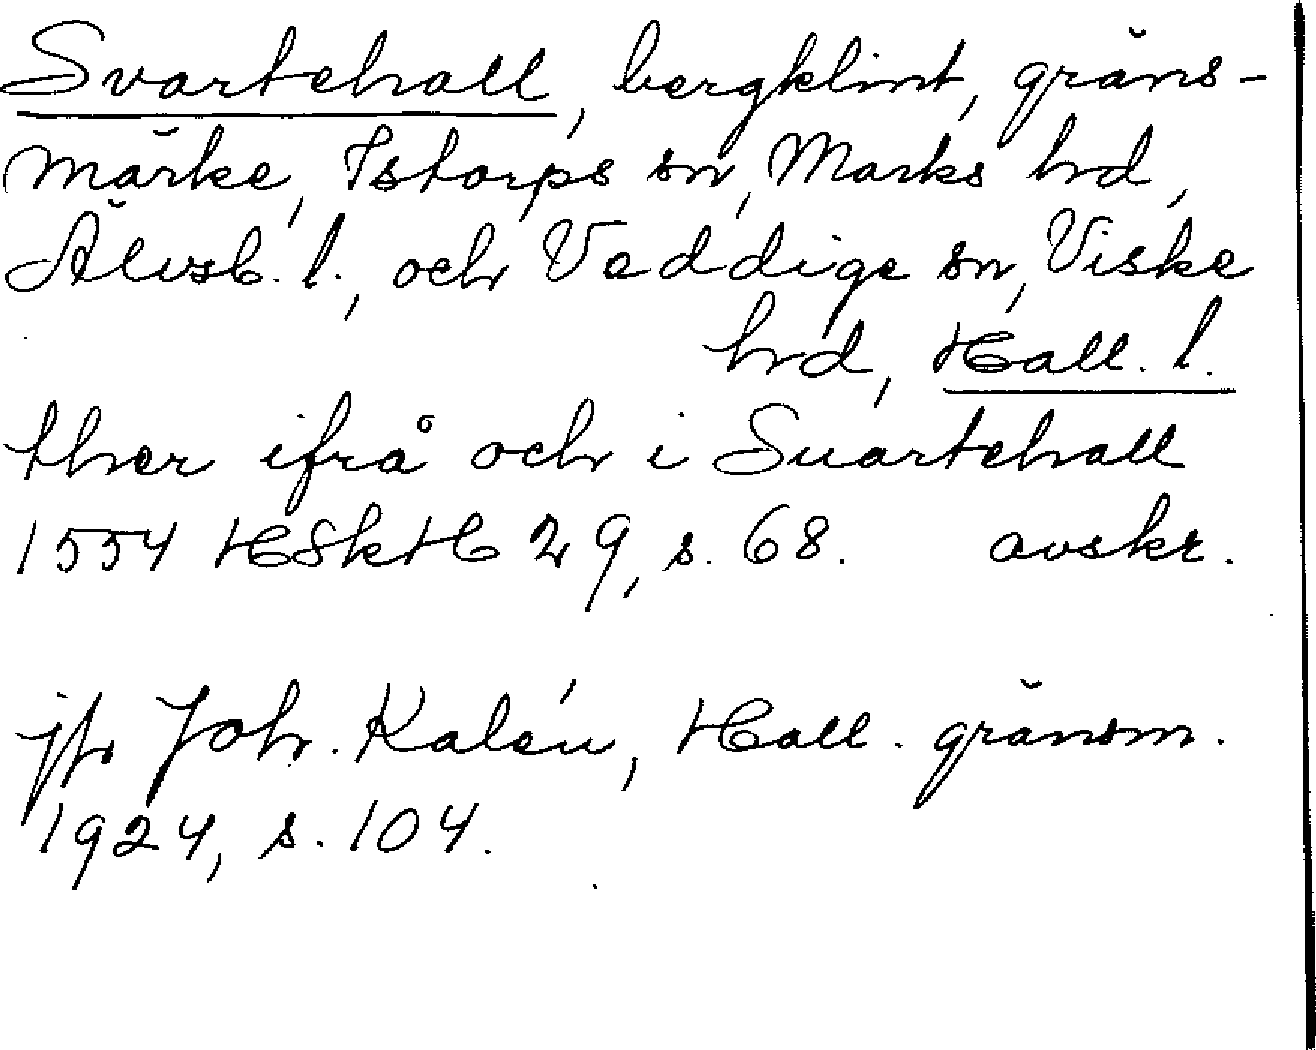 Svartehall, bergklint, gräns-
märke, Istorps sn, Marks hd,
Älvsb. l., och Veddige sn, Viske
hd, Hall. l.
ther ifrå och i Suartehall
1554 HSkH 29, s. 68. avskr.
jfr Joh. Kalén, Hall. gränsm.
1924, s. 104.